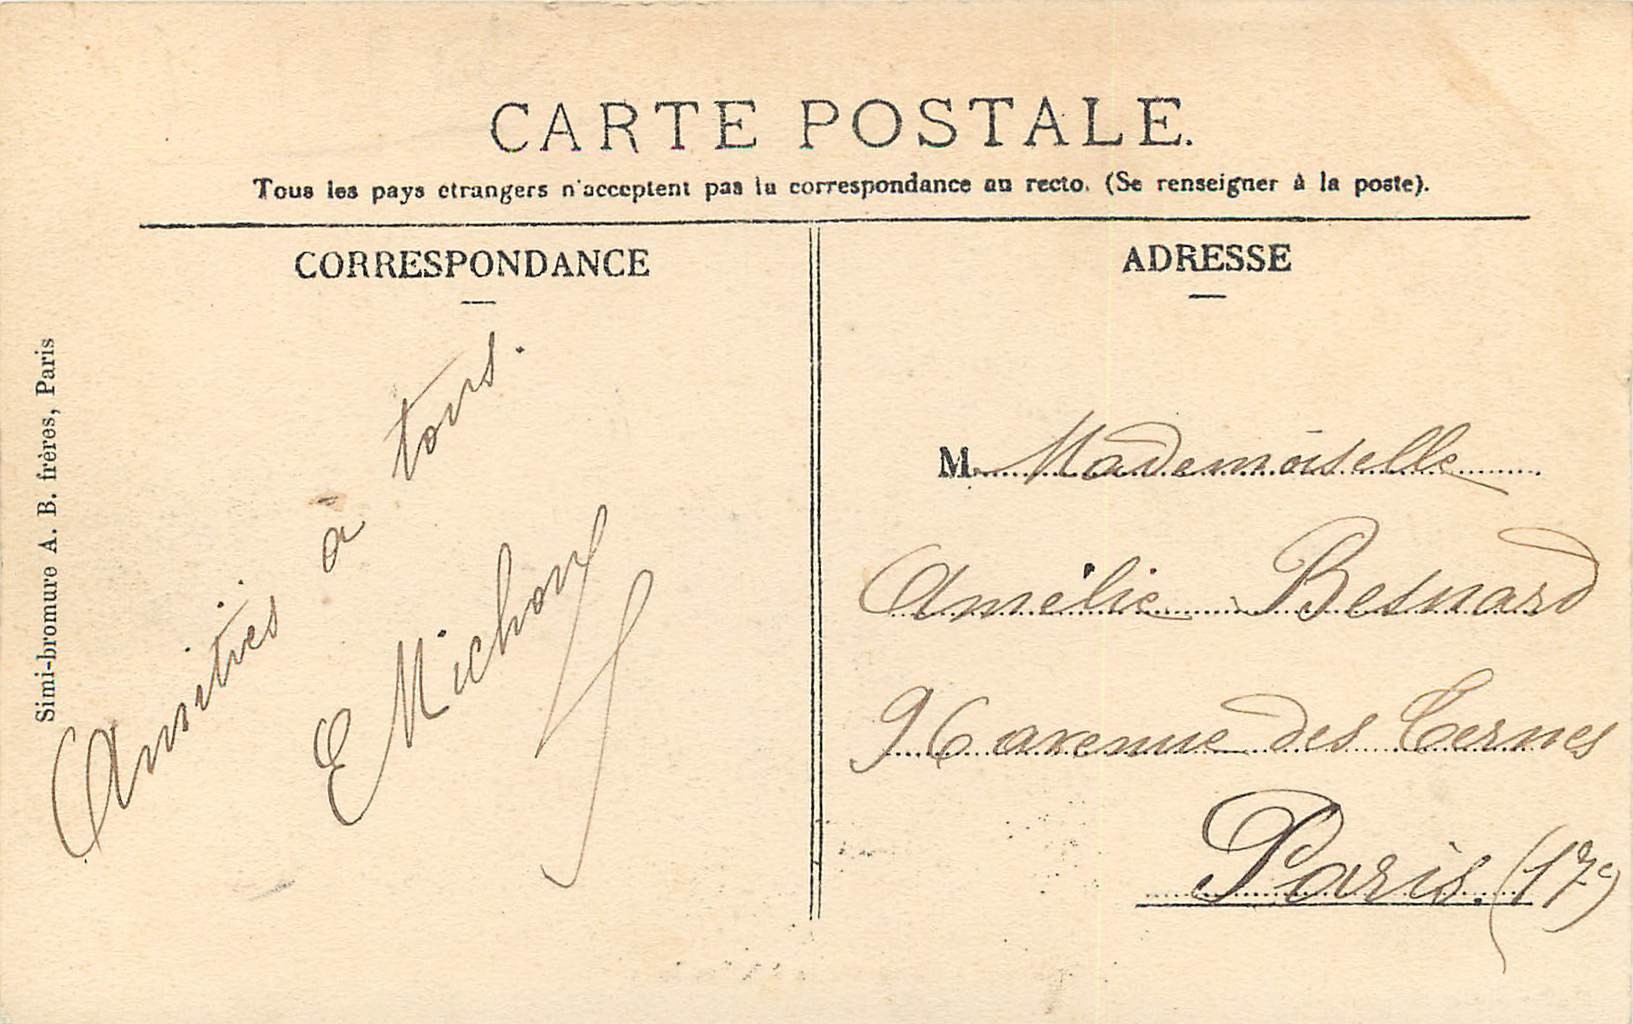 CARTE POSTALE.
Tous les pays etrangers n'acceptent pas la correspondance au recto. (Se renseigner à la poste).
CORRESPONDANCE
Amitiés à tous.
E Michon
Simi-bromure A. B. frères, Paris
ADRESSE
M. Mademoiselle
Amélie Besnard
96 avenue des Ternes
Paris. (17e)